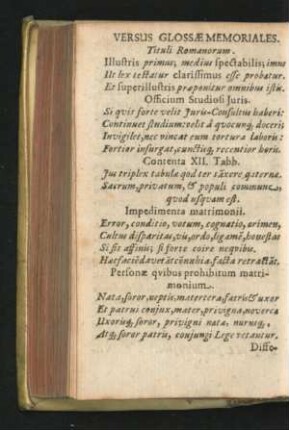 VERSUS GLOSSÆ MEMORIALES.
Tituli Romanorum.
Illustris primus, medius spectabilis, imus
Ut lex testatur clarissimus esse probatur.
Et superillustris præponitur omnibus istis.
Officium Studiosi Juris.
Si qvis forte velit Juris-Consultus haberi:
Continuet studium: velit á qvocunq; doceri
Invigilet, nec vincat eum tortura laboris:
Fortior insurgat, cunctisq; recentior horis.
Contenta XII. Tabb.
Jus triplex tabulæ qvod ter sanxere qvaternæ.
Sacrum, privatum, & populi commune,
qvod usqvam est.
Impedimenta matrimonii.
Error, conditio, votum, cognatio, crimen,
Cultus disparitas, vis, ordo, ligamē, honestas
Si sit affinis; si forte coire neqvibis.
Hæc faciēda vetāt cōnubia, facta retractāt.
Personæ qvibus prohibitum matri-
monium.
Nata, soror, neptis, matertera, fatris & uxor
Et patrui conjux, mater, privigna, noverca
Uxorisq; soror, privigni nata, nurusq;,
Atq; soror patris, conjungi Lege vetantur.
Diffe-